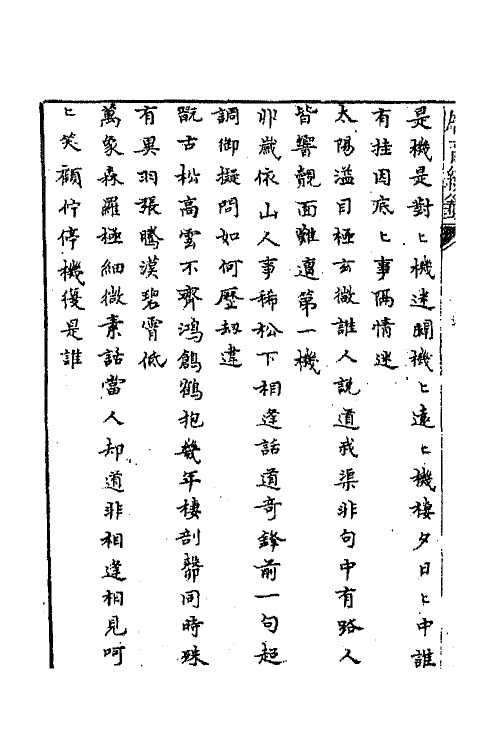 是機是對ヒ機迷闢機ヒ遠ヒ機棲夕日ヒ中誰
有挂因底ヒ事隔情迷
太陽溢目極玄微誰人說道我渠非句中有路人
皆響覿面難遭第一機
卯歲依山人事稀松下相逢話道奇鋒前一句超
調御擬問如何歷劫違
翫古松高雲不齊鴻鶴鶴抱幾年棲剖㲉同時殊
有異羽張騰漢碧霄低
萬象森羅極細微素話當人却道非相逢相見呵
ヒ笑顧佇停機復是誰